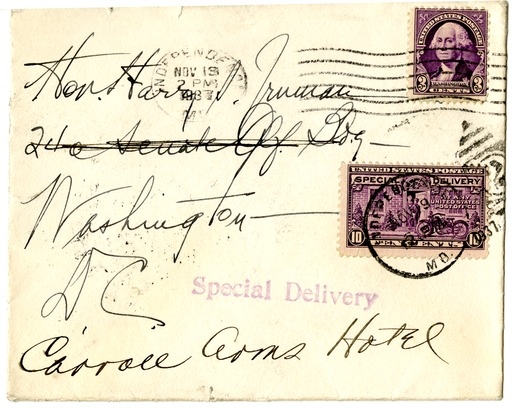 INDEPENDENCE
NOV 19
2 PM
1937
MO.
UNITED STATES POSTAGE
3 3
WASHINGTON
Hon. Harry S. Truman
240 Senate Off. Bdg
Washington
D C
UNITED STATES POSTAGE
SPECIAL DELIVERY
UNITED STATES
POST OFFICE
10 TEN CENTS 10
INDEPENDENCE
NOV 19
MO.
1937
Special Delivery
Carroll Arms Hotel